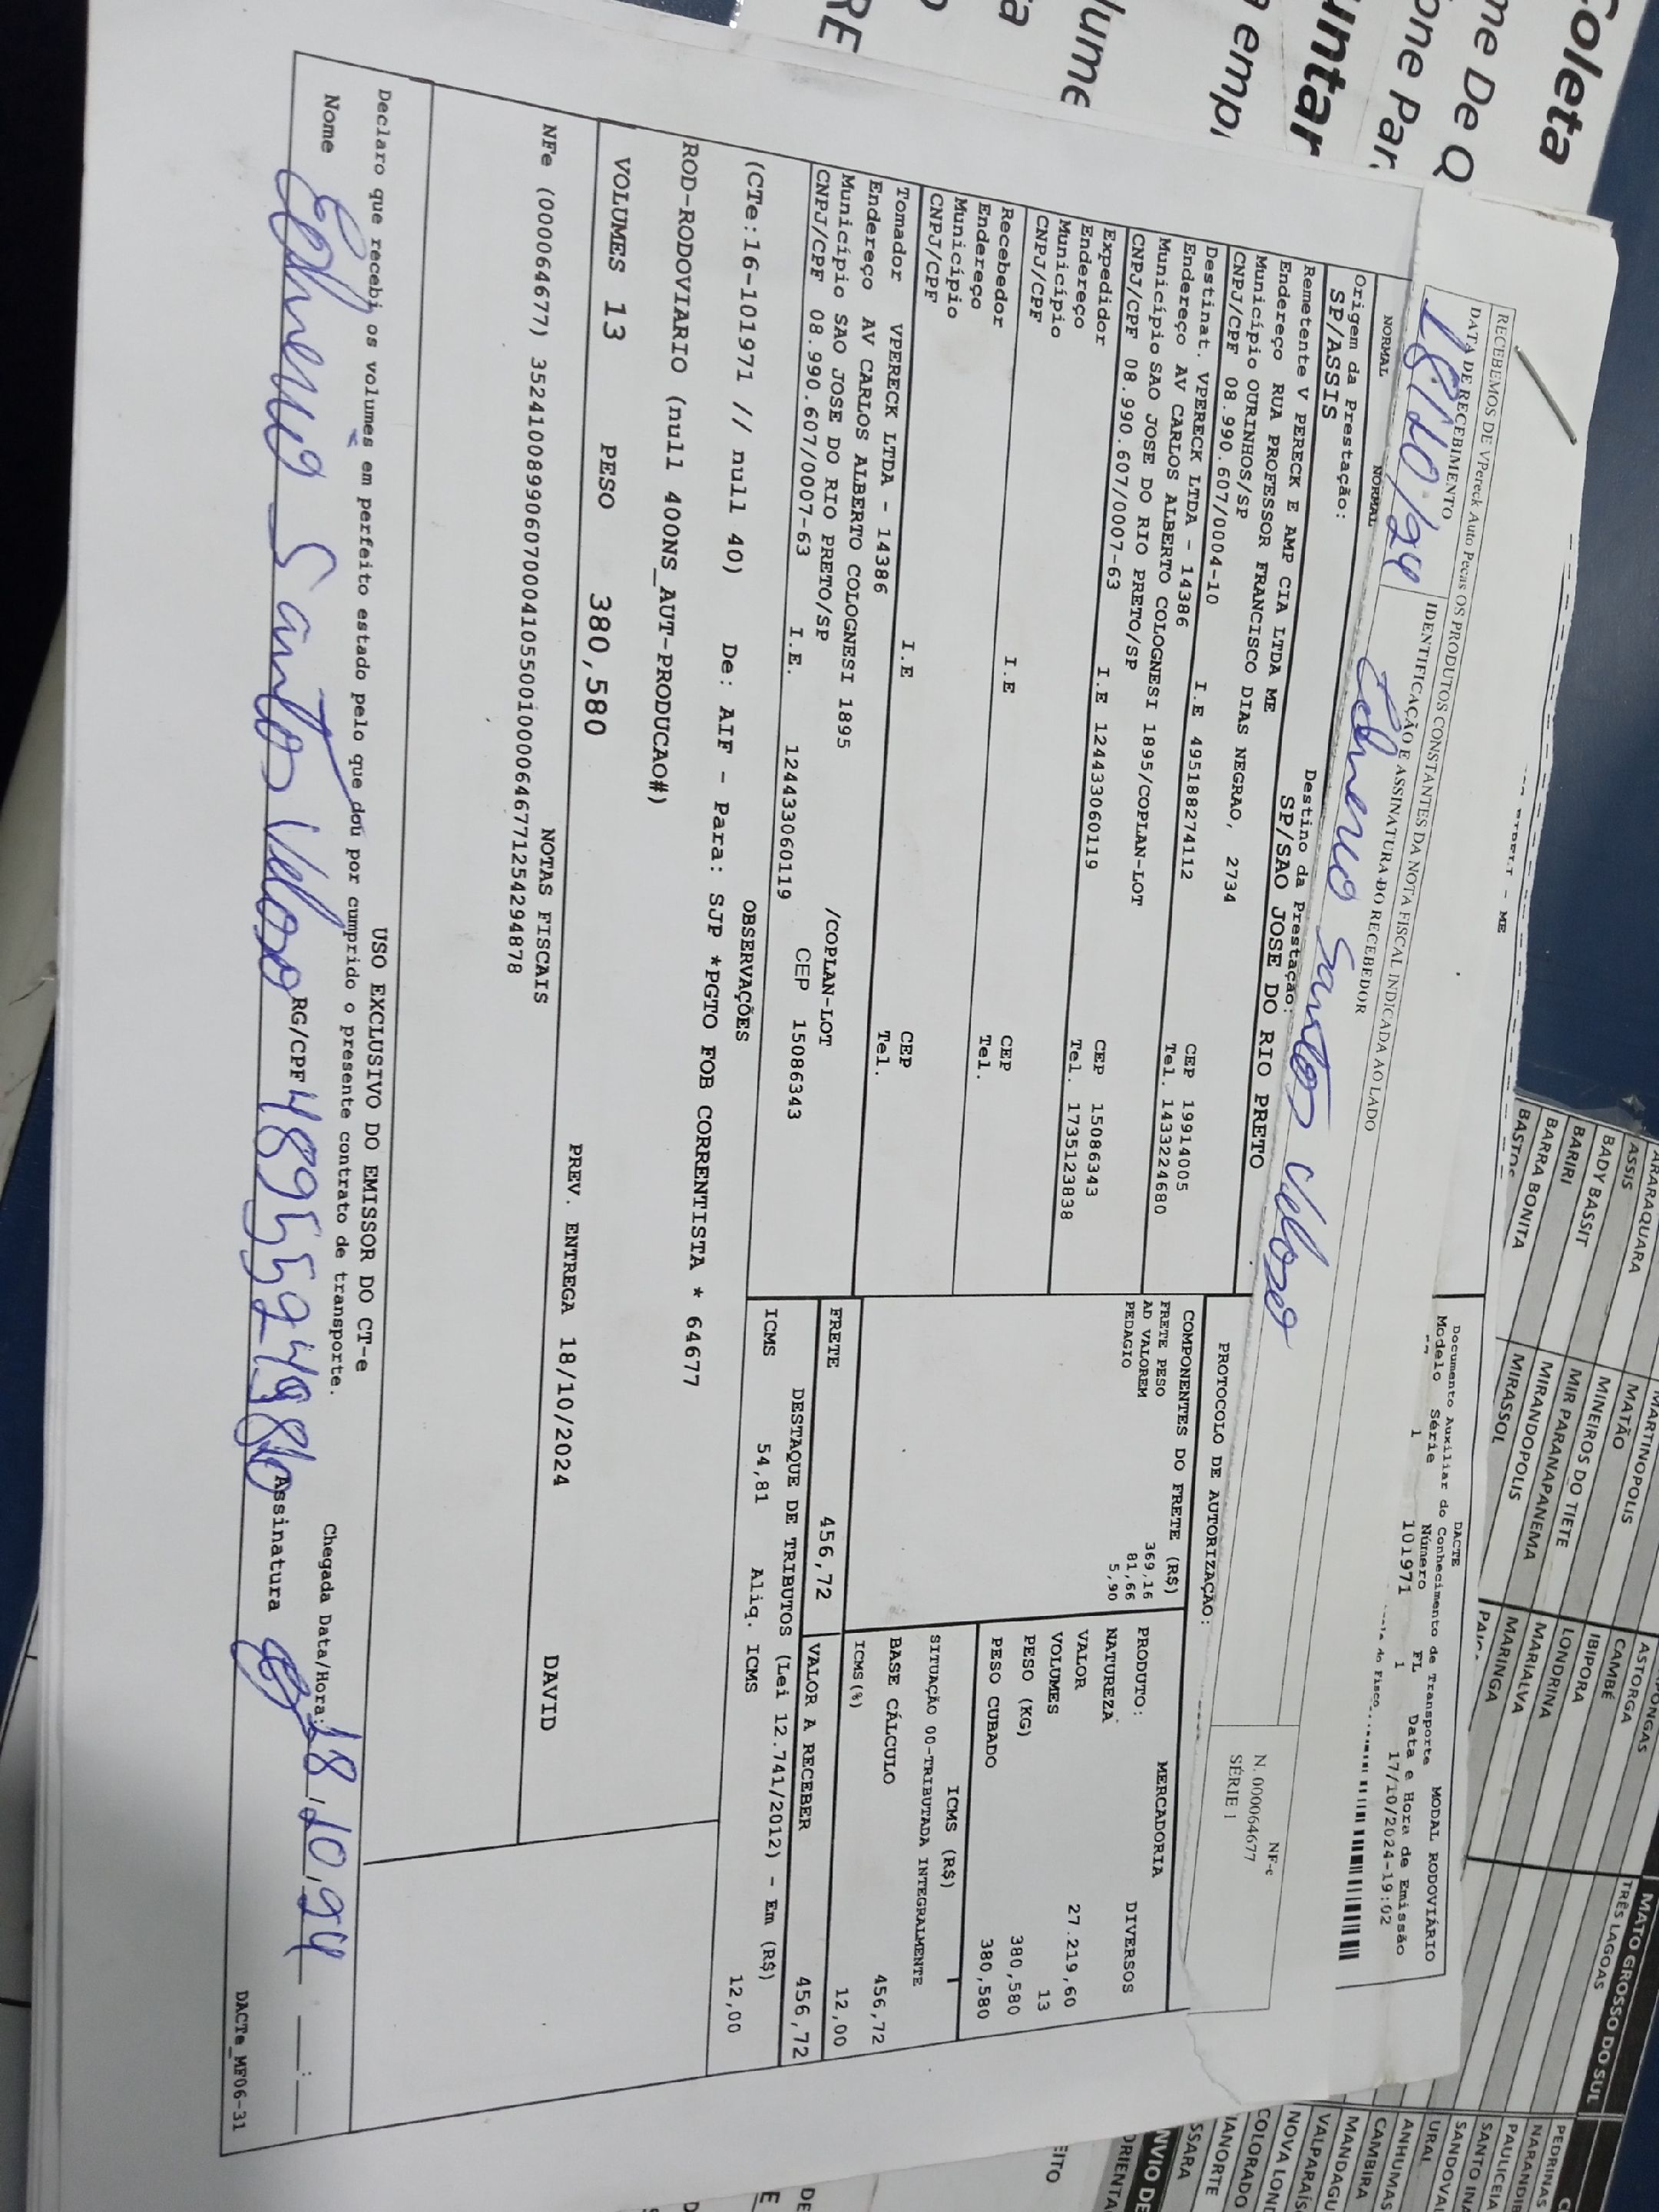 Coleta
me De Q
one Par
untar
a emp
lume
RECEBEMOS DE VPereck Auto Pecas OS PRODUTOS CONSTANTES DA NOTA FISCAL INDICADA AO LADO
DATA DE RECEBIMENTO
IDENTIFICAÇÃO E ASSINATURA DO RECEBEDOR
18/10/24
Santos Veloso
NF-e
N. 000064677
SÉRIE 1
DACTE
MODAL RODOVIÁRIO
Documento Auxiliar do Conhecimento de Transporte
Modelo Série Número FL Data e Hora de Emissão
1 101971 1 17/10/2024-19:02
NORMAL NORMAL
Origem da Prestação: Destino da Prestação:
SP/ASSIS SP/SAO JOSE DO RIO PRETO
PROTOCOLO DE AUTORIZAÇÃO:
Remetente V PERECK E AMP CIA LTDA ME
Endereço RUA PROFESSOR FRANCISCO DIAS NEGRAO, 2734
Município OURINHOS/SP CEP 19914005
CNPJ/CPF 08.990.607/0004-10 I.E 495188274112 Tel. 1433224680
Destinat. VPERECK LTDA - 14386
Endereço AV CARLOS ALBERTO COLOGNESI 1895/COPLAN-LOT
Município SAO JOSE DO RIO PRETO/SP CEP 15086343
CNPJ/CPF 08.990.607/0007-63 I.E 124433060119 Tel. 1735123838
Expedidor
Endereço
Município CEP
CNPJ/CPF I.E Tel.
Recebedor
Endereço
Município CEP
CNPJ/CPF I.E Tel.
Tomador VPERECK LTDA - 14386
Endereço AV CARLOS ALBERTO COLOGNESI 1895 /COPLAN-LOT
Município SAO JOSE DO RIO PRETO/SP CEP 15086343
CNPJ/CPF 08.990.607/0007-63 I.E. 124433060119
COMPONENTES DO FRETE (R$)
FRETE PESO 369,16
AD VALOREM 81,66
PEDAGIO 5,90
MERCADORIA
PRODUTO: DIVERSOS
NATUREZA
VALOR 27.219,60
VOLUMES 13
PESO (KG) 380,580
PESO CUBADO 380,580
ICMS (R$)
SITUAÇÃO 00-TRIBUTADA INTEGRALMENTE
BASE CÁLCULO 456,72
ICMS(%) 12,00
FRETE 456,72 VALOR A RECEBER 456,72
DESTAQUE DE TRIBUTOS (Lei 12.741/2012) - Em (R$)
ICMS 54,81 Aliq. ICMS 12,00
OBSERVAÇÕES
(CTe:16-101971 // null 40) De: AIF - Para: SJP *PGTO FOB CORRENTISTA * 64677
ROD-RODOVIARIO (null 400NS_AUT-PRODUCAO#)
VOLUMES 13 PESO 380,580 PREV. ENTREGA 18/10/2024 DAVID
NOTAS FISCAIS
NFe (000064677) 35241008990607000410550010000646771254294878
USO EXCLUSIVO DO EMISSOR DO CT-e
Declaro que recebi os volumes em perfeito estado pelo que dou por cumprido o presente contrato de transporte.
Chegada Data/Hora: 18/10/24 __:__
Nome Santos Veloso RG/CPF Assinatura
DACTe_MF06-31
ARARAQUARA
ASSIS
BADY BASSIT
BARIRI
BARRA BONITA
BASTOS
MARTINOPOLIS
MATÃO
MINEIROS DO TIETE
MIR PARANAPANEMA
MIRANDOPOLIS
MIRASSOL
ASTORGA
CAMBÉ
IBIPORA
LONDRINA
MARIALVA
MARINGA
MATO GROSSO DO SUL
TRÊS LAGOAS